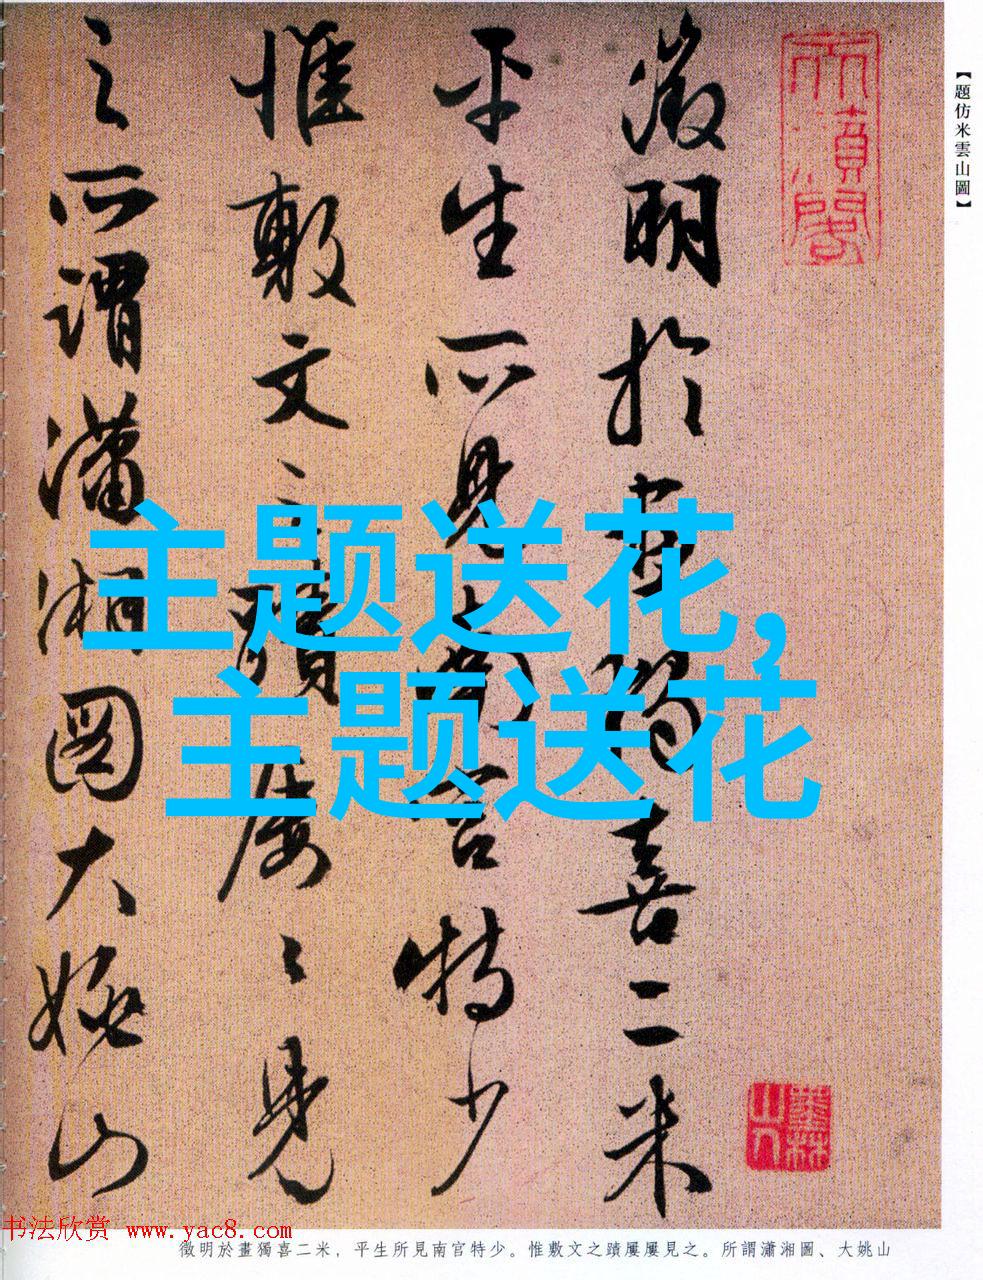 【題仿米雲山圖】
徵明於畫獨喜二米
平生所見南宫特少
惟敷文之蹟屢〻見
之所謂瀟湘圖大姚山
主题送花，
主题送花
书法欣赏 www.yac8.com
徵明於畫獨喜二米，平生所見南官特少。惟敷文之蹟屢屢見之。所謂瀟湘圖、大姚山